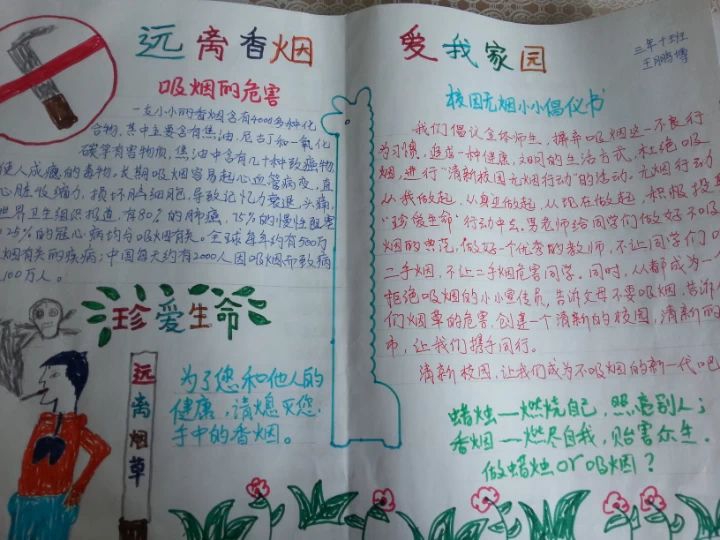 远离香烟
吸烟的危害
一支小小的香烟含有4000多种化
合物,其中主要含有焦油、尼古丁和一氧化
碳等有害物质,焦油中含有几十种致癌物,
使人成瘾的毒物,长期吸烟容易起心血管病变,直
心脏收缩力,损坏脑细胞,导致记忆力衰退,头痛,
世界卫生组织报道,有80%的肺癌,75%的慢性阻塞
25%的冠心病均与吸烟有关。全球每年约有500万
烟有关的疾病;中国每天约有2000人因吸烟而致病
100万人。
珍爱生命
远离烟草
为了您和他人的
健康,请熄灭您
手中的香烟。
爱我家园
三年十班
王鹏博
校园无烟小小倡仪书
我们倡议全体师生,摒弃吸烟这一不良行
为习惯,追求一种健康,文明的生活方式,杜绝吸
烟,进行“清新校园无烟行动”的活动。无烟行动
从我做起,从身边做起,从现在做起,积极投
“珍爱生命”行动中去,男老师给同学们做好不吸
烟的典范,做好一个优秀的教师,不让同学们
二手烟,不让二手烟危害同学。同时,人都成为一
拒绝吸烟的小小宣传员,告诉父母不要吸烟,告诉
们烟草的危害,创建一个清新的校园,清新的
市,让我们携手同行。
清新校园,让我们成为不吸烟的新一代吧
蜡烛—燃烧自己,照亮别人;
香烟—燃尽自我,贻害众生。
做蜡烛or吸烟?